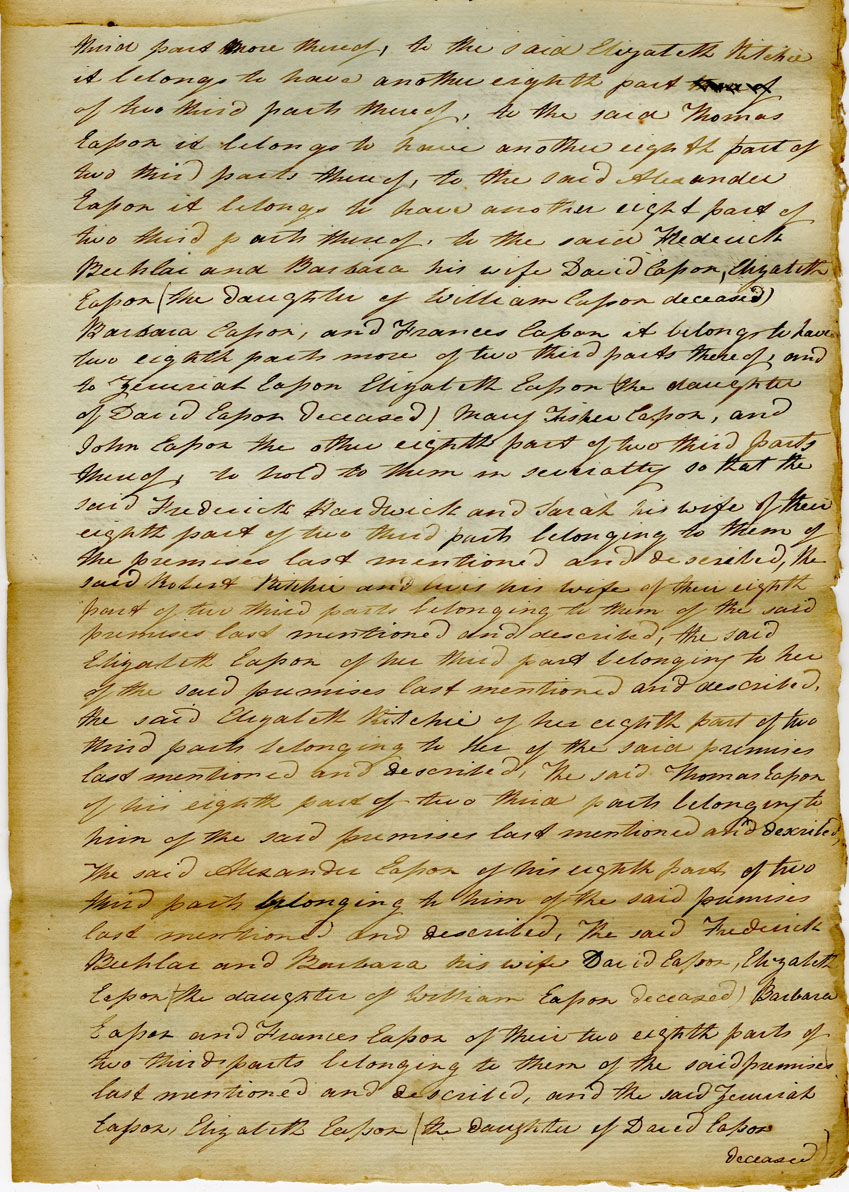 third part more thereof, to the said Elizabeth Ritchie
it belongs to have another eighth part
of two third parts thereof, to the said Thomas
Eason it belongs to have another eighth part of
two third parts thereof, to the said Alexander
Eason it belongs to have another eight part of
two third parts thereof, to the said Frederick
and Barbara his wife David Eason, Elizabeth
Eason (the daughter of William Eason deceased)
Barbara Eason, and Frances Eason it belongs to have
two eighth parts more of two third parts thereof, and
to Eason Elizabeth Eason (the daughter
of David Eason deceased) Mary Fisher Eason, and
John Eason the other eighth part of two third parts
thereof, to hold to them in severalty so that the
said Frederick Hardwick and Sarah his wife of their
eighth part of two third parts belonging to them of
the premises last mentioned and described, the
said Robert Ritchie and his wife of their eighth
part of two third parts belonging to them of the said
premises last mentioned and described, the said
Elizabeth Eason of her third part belonging to her
of the said premises last mentioned and described,
the said Elizabeth Ritchie of her eighth part of two
third parts belonging to her of the said premises
last mentioned and described, The said Thomas Eason
of his eighth part of two third parts belonging to
him of the said premises last mentioned and described,
The said Alexander Eason of his eighth part of two
third parts belonging to him of the said premises
last mentioned and described, The said Frederick
and Barbara his wife David Eason, Elizabeth
Eason (the daughter of William Eason deceased) Barbara
Eason and Frances Eason of their two eighth parts of
two thirds parts belonging to them of the said premises
last mentioned and described, and the said
Eason, Elizabeth Eason (the daughter of David Eason
deceased)